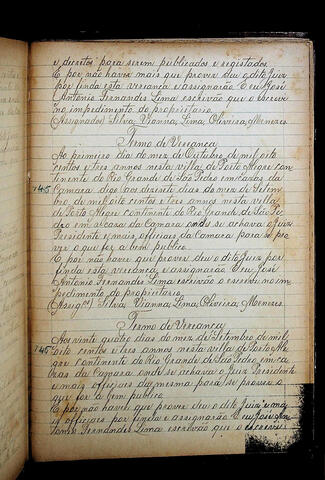 e decretos para serem publicados e registados.
E por não haver mais que prover deu o dito Juiz
por finda esta vereança e assignarão E eu José
Antonio Fernandes Lima escrivão que o escrevi
no impedimento do proprietario.
(Assignados) Silva, Vianna, Lima, Oliveira, Menezes.
Termo de Vereança
Ao primeiro dia do mez de Outubro de mil oito
centos e tres annos nesta villa de Porto Alegre con-
tinente do Rio Grande de São Pedro em casas da
Camara digo aos dezesete dias do mez de Setem-
bro, de mil oito centos e tres annos nesta villa
de Porto Alegre continente do Rio Grande de São Pe-
dro em a casa da Camara onde se achava o Juiz
Presidente e mais officiaes da Camara para se pro-
ver o que for a bem publico.
E por não haver que prover deu o dito Juiz por
finda esta vereança e assignarão E eu José
Antonio Fernandes Lima escrivão o escrevi no im-
pedimento do proprietario.
(Assig.os) Silva, Vianna, Lima, Oliveira, Menezes.
Termo de Vereança
Aos vinte quatro dias do mez de Setembro de mil
oito centos e tres annos nesta villa de Porto Ale-
gre continente do Rio Grande de São Pedro em ca-
zas da Camara onde se achava o Juiz Presidente
e mais officiaes da mesma para se prover o
que for a bem publico
E por não haver que prover deu o dito Juiz e ma-
is officiaes por finda e assignarão E eu José An-
tonio Fernandes Lima escrivão que o escrevi